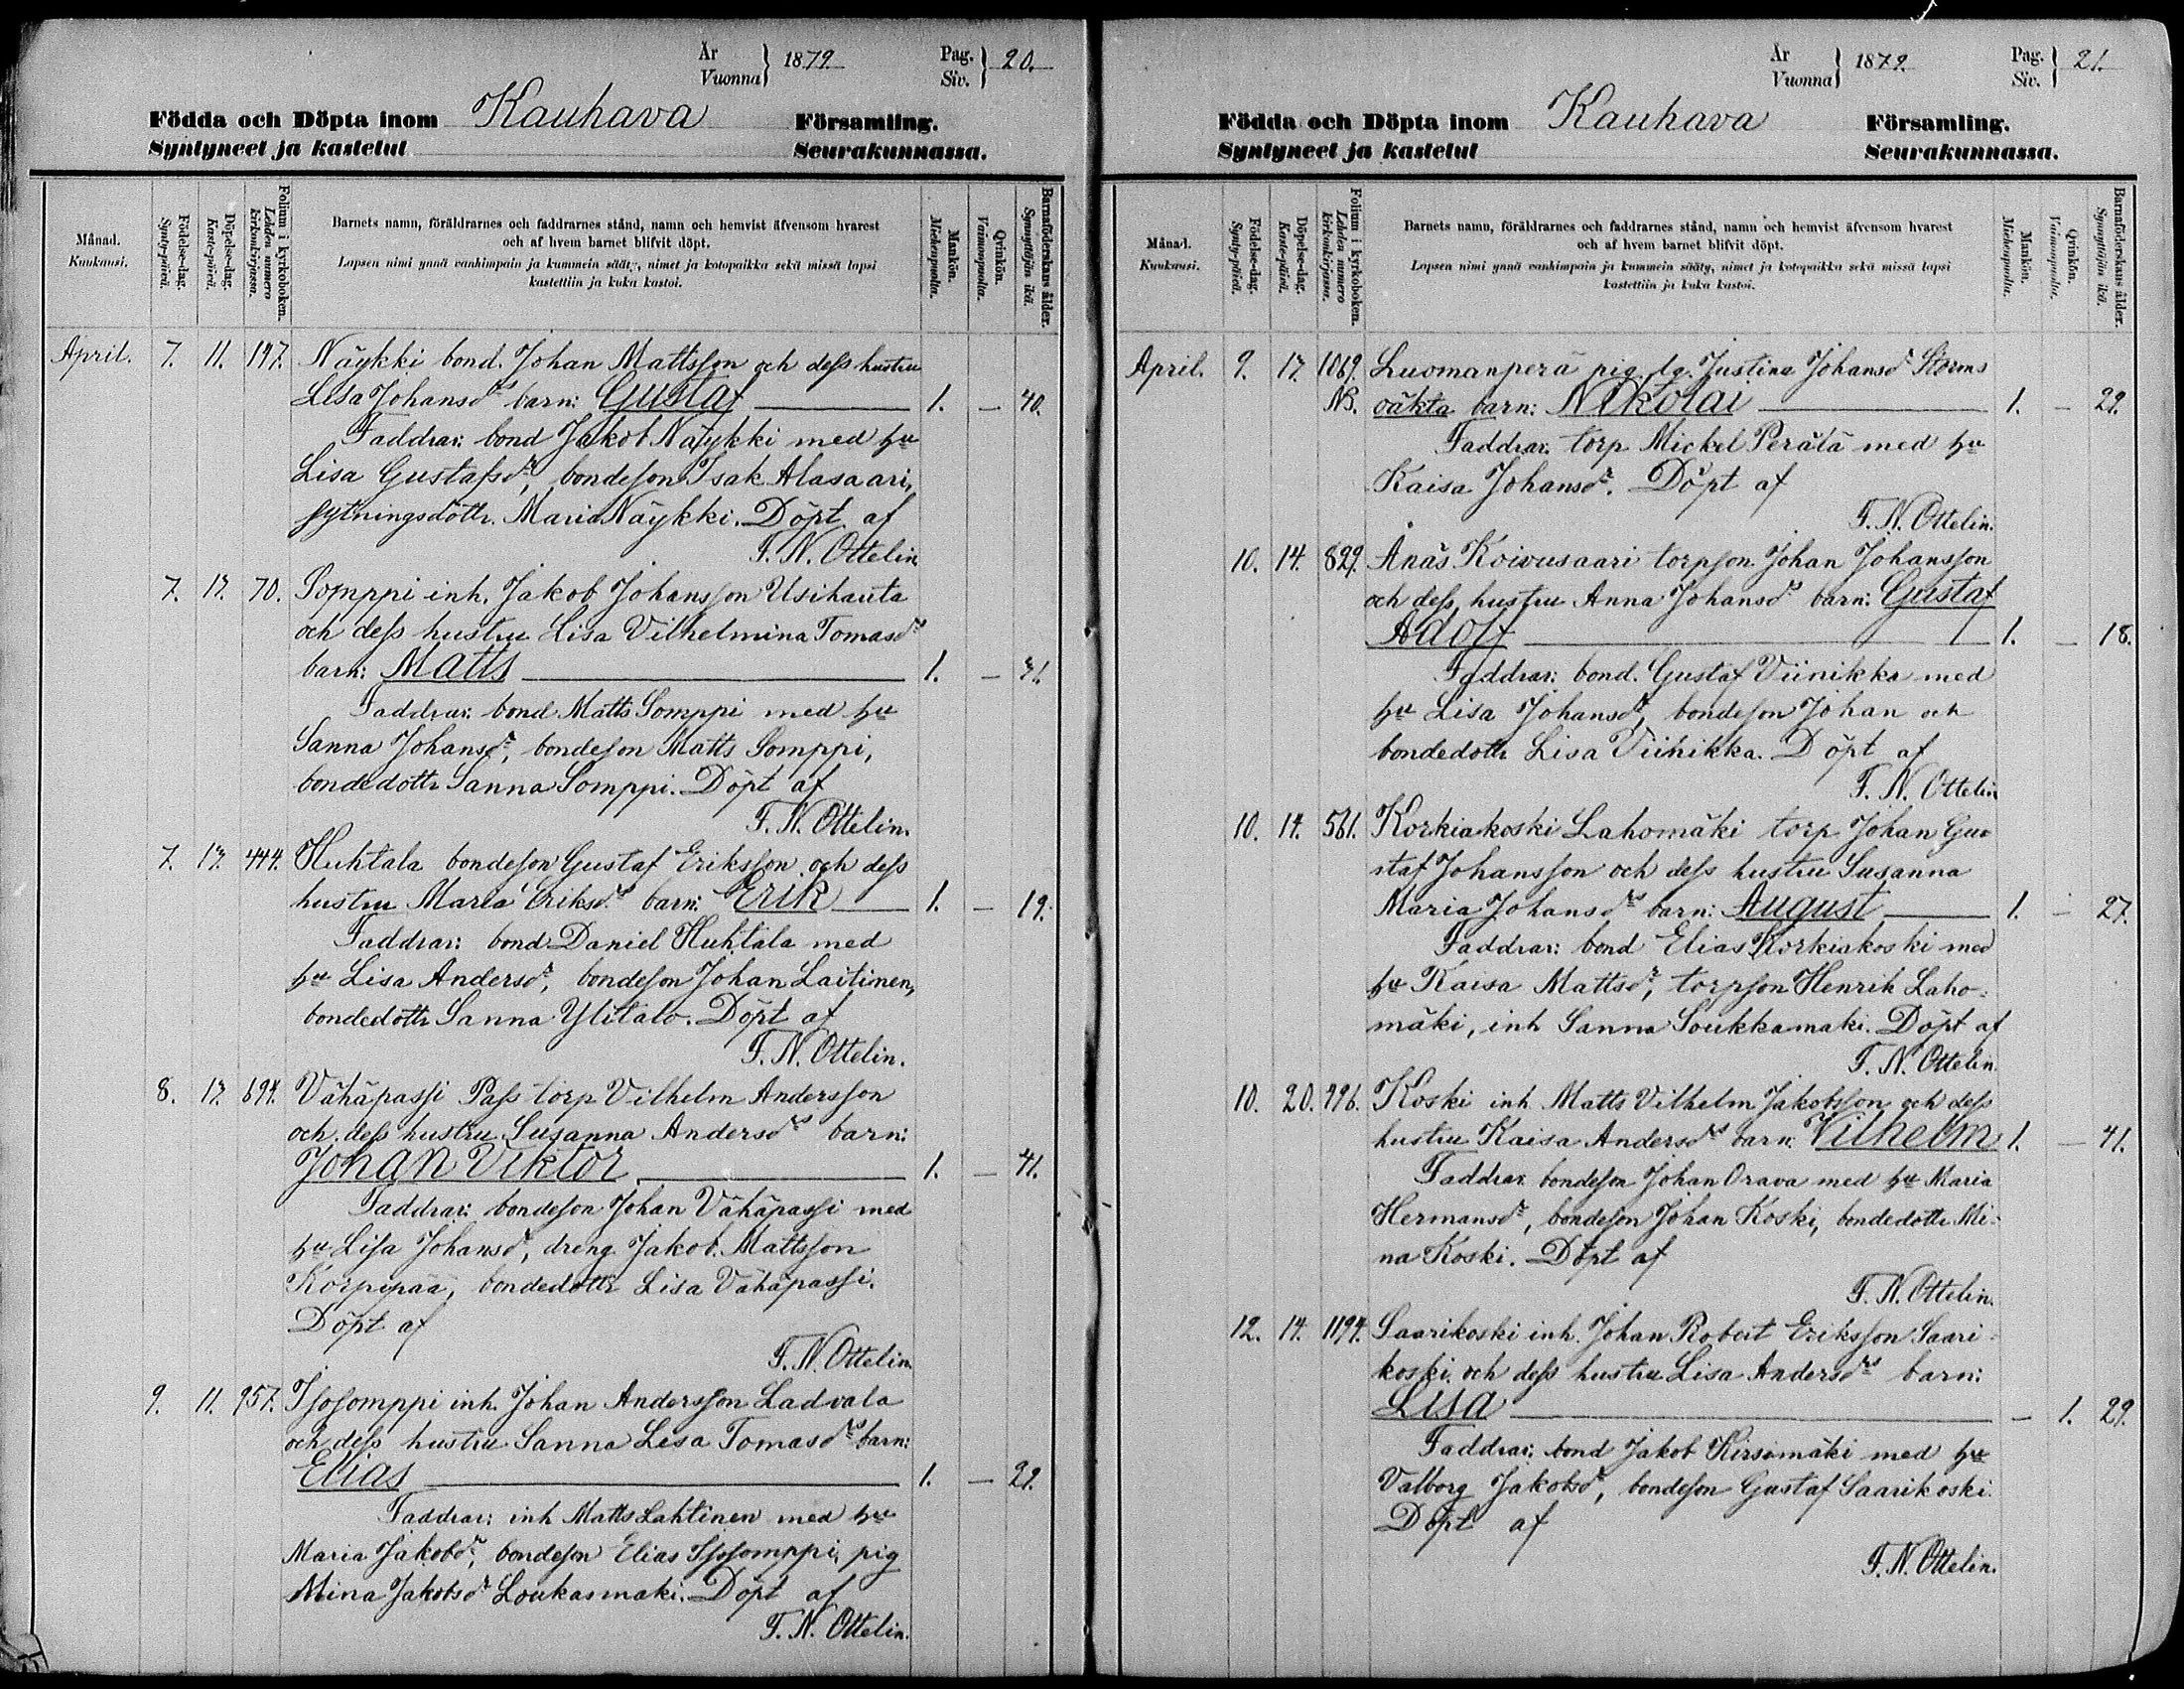 År
Vuonna } 1879. Pag.
Siv. } 20.
Födda och Döpta inom Kauhava Församling.
Syntyneet ja kastetut Seurakunnassa.
Månad.
Kuukausi.
Födelse-dag.
Synty-päivä.
Döpelse-dag.
Kaste-päivä.
Folium i kyrkoboken.
Lehden numero
kirkonkirjassa.
Barnets namn, föräldrarnes och faddrarnes stånd, namn och hemvist äfvensom hvarest
och af hvem barnet blifvit döpt.
Lapsen nimi ynnä vanhimpain ja kummein sääty, nimet ja kotopaikka sekä missä lapsi
kastettiin ja kuka kastoi.
Mankön.
Miehenpuolta.
Qvinkön.
Vaimonpuolta.
Barnaföderskans ålder.
Synnyttäjän ikä.
April. 7. 11. 197. Näykki bond. Johan Mattsson och dess hustru
Lisa Johansdrs barn: Gustaf 1. — 40.
Faddrar: bond Jakob Näykki med hu
Lisa Gustafsdr, bondeson Isak Alasaari,
sytningsdottr. Maria Näykki. Döpt af
F. N. Ottelin
7. 13. 70. Somppi inh. Jakob Johansson Usihauta
och dess hustru Lisa Vilhelmina Tomasdrs
barn: Matts 1. — 31.
Faddrar: bond Matts Somppi med hu
Sanna Johansdr, bondeson Matts Somppi,
bondedottr Sanna Somppi. Döpt af
F. N. Ottelin.
7. 13. 444. Huhtala bondeson Gustaf Eriksson och dess
hustru Maria Eriksdrs barn: Erik 1. — 19.
Faddrar: bond Daniel Huhtala med
hu Lisa Andersdr, bondeson Johan Laitinen,
bondedottr Sanna Ylitalo. Döpt af
F. N. Ottelin.
8. 13. 694. Vähäpassi Pass torp Vilhelm Andersson
och dess hustru Susanna Andersdrs barn:
Johan Viktor 1. — 41.
Faddrar: bondeson Johan Vähäpassi med
hu Lisa Johansdr, dreng Jakob Mattsson
Korpipää, bondedottr Lisa Vähäpassi.
Döpt af
F. N. Ottelin
9. 11. 957. Isosomppi inh. Johan Andersson Ladvala
och dess hustru Sanna Lesa Tomasdrs barn:
Elias 1. — 22.
Faddrar: inh Matts Lahtinen med hu
Maria Jakobsdr, bondeson Elias Isosomppi, pig
Mina Jakobsdr Loukasmäki. Döpt af
F. N. Ottelin.
År
Vuonna } 1879. Pag.
Siv. } 21.
Födda och Döpta inom Kauhava Församling.
Syntyneet ja kastetut Seurakunnassa.
Månad.
Kuukausi.
Födelse-dag.
Synty-päivä.
Döpelse-dag.
Kaste-päivä.
Folium i kyrkoboken.
Lehden numero
kirkonkirjassa.
Barnets namn, föräldrarnes och faddrarnes stånd, namn och hemvist äfvensom hvarest
och af hvem barnet blifvit döpt.
Lapsen nimi ynnä vanhimpain ja kummein sääty, nimet ja kotopaikka sekä missä lapsi
kastettiin ja kuka kastoi.
Mankön.
Miehenpuolta.
Qvinkön.
Vaimonpuolta.
Barnaföderskans ålder.
Synnyttäjän ikä.
April. 9. 17. 1069. Luomanperä pig. lg. Justina Johansdr Storms
NB. oäkta barn: Nikolai 1. — 29.
Faddrar: torp Mickel Perälä med hu
Kaisa Johansdr. Döpt af
F. N. Ottelin.
10. 14. 829. Ånäs Koivusaari torpson Johan Johansson
och dess hustru Anna Johansdrs barn: Gustaf
Adolf 1. — 18.
Faddrar: bond. Gustaf Viinikka med
hu Lisa Johansdr, bondeson Johan och
bondedottr Lisa Viinikka. Döpt af
F. N. Ottelin
10. 14. 561. Korkiakoski Lahomäki torp Johan Gus
staf Johansson och dess hustru Susanna
Maria Johansdrs barn: August 1. — 27.
Faddrar: bond Elias Korkiakoski med
hu Kaisa Mattsdr, torpson Henrik Laho-
mäki, inh Sanna Soukkamaki. Döpt af
F. N. Ottelin.
10. 20. 796. Koski inh Matts Vilhelm Jakobsson och dess
hustru Kaisa Andersdrs barn: Vilhelm 1. — 41.
Faddrar: bondeson Johan Orava med hu Maria
Hermansdr, bondeson Johan Koski, bondedottr Mi-
na Koski. Döpt af
F. N. Ottelin.
12. 14. 1194. Saarikoski inh. Johan Robert Eriksson Saari-
koski och dess hustru Lisa Andersdrs barn:
Lisa — 1. 29.
Faddrar: bond Jakob Kirsimäki med hu
Valborg Jakobsdr, bondeson Gustaf Saarikoski.
Döpt af
F. N. Ottelin.